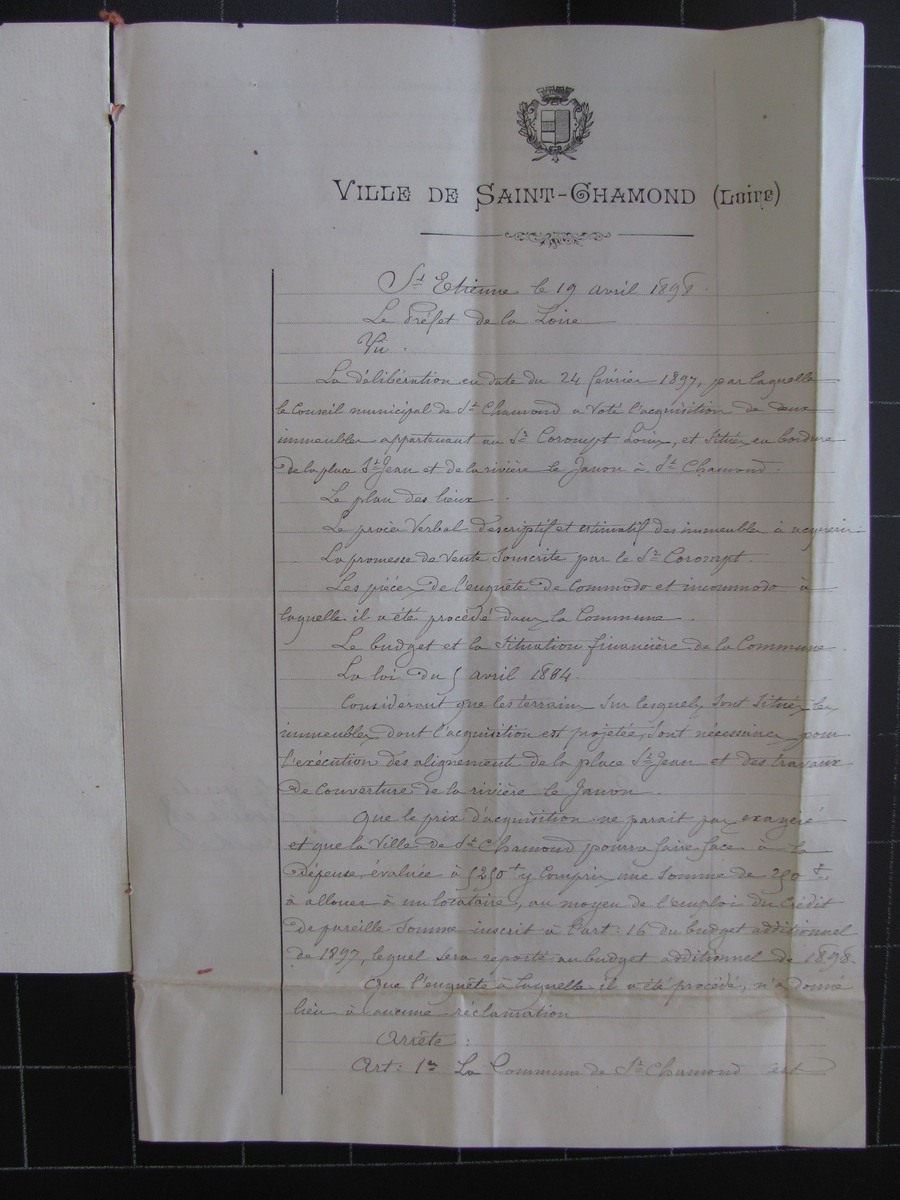 VILLE DE SAINT-CHAMOND (Loire)
St Etienne le 19 avril 1898.
Le Préfet de la Loire
Vu.
La délibération en date du 24 février 1897, par laquelle
le Conseil municipal de St Chamond a voté l'acquisition de deux
immeubles appartenant au Sr Corompt Louis, et situés en bordure
de la place St Jean et de la rivière le Janon à St Chamond.
Le plan des lieux.
Le procès Verbal descriptif et estimatif des immeubles à acquérir.
La promesse de Vente souscrite par le Sr Corompt.
Les pièces de l'enquête de commodo et incommodo à
laquelle il a été procédé dans la Commune.
Le budget et la situation financière de la Commune.
La loi du 5 avril 1884.
Considérant que les terrains sur lesquels sont situés les
immeubles dont l'acquisition est projetée, sont nécessaires pour
l'exécution des alignements de la place St Jean et des travaux
de couverture de la rivière le Janon.
Que le prix d'acquisition ne parait pas exagéré
et que la Ville de St Chamond pourra faire face à la
dépense, évaluée à 5250 f y compris une somme de 250 f.
à allouer à un locataire, au moyen de l'emploi du crédit
de pareille somme inscrit à l'art: 16 du budget additionnel
de 1897, lequel sera reporté au budget additionnel de 1898.
Que l'enquête à laquelle il a été procédé, n'a donné
lieu à aucune réclamation
Arrête:
Art: 1er La Commune de St Chamond est